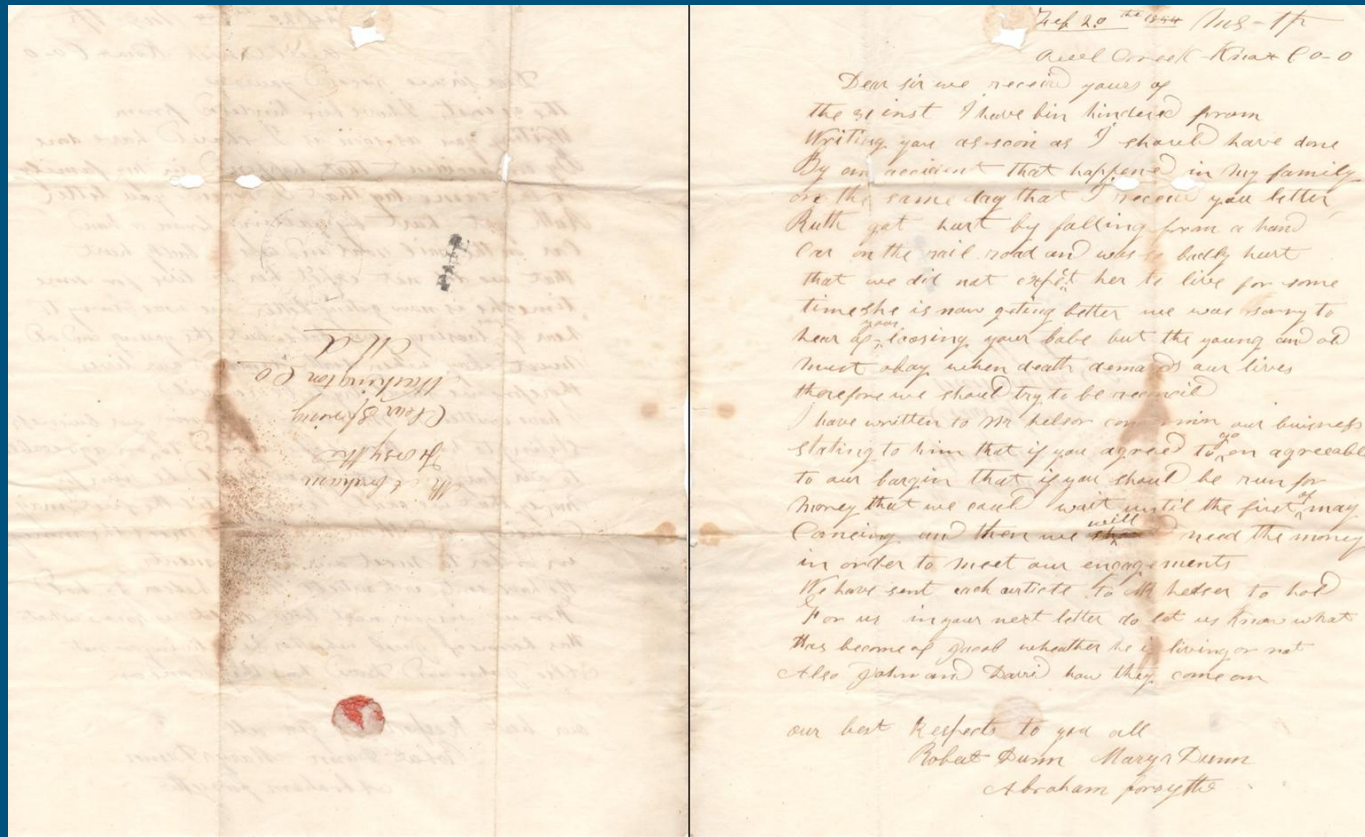 the 20th 1854
Creek Knox Co - O
Dear sir we receivd yours of
the inst I have bin hindered from
Writing you as soon as I should have done
By an accident that happened in my family
on the same day that I receivd you letter
Ruth got hurt by falling from a hand
Car on the rail road and was so badly hurt
that we did not expet her to live for some
time she is now geting better we was sorry to
hear of your loosing your babe but the young and old
must obay when death demands our lives
therefore we should try to be reconcild
I have written to Mr our buisness
stating to him that if you agreed to go on agreeable
to our bargin that if you should be run for
money that we could wait until the first of may
Comeing and then we will need the money
in order to meet our engagements
We have sent each article to Mr to hold
For us in your next letter do let us know what
Has become of Jacob wheather he is living or not
Also John and David how they come on
our best Respects to you all
Robert Dunn Mary Dunn
Abraham forsythe
PAID
Mr Abraham
Forsythe
Clear Spring
Washington Co
Md